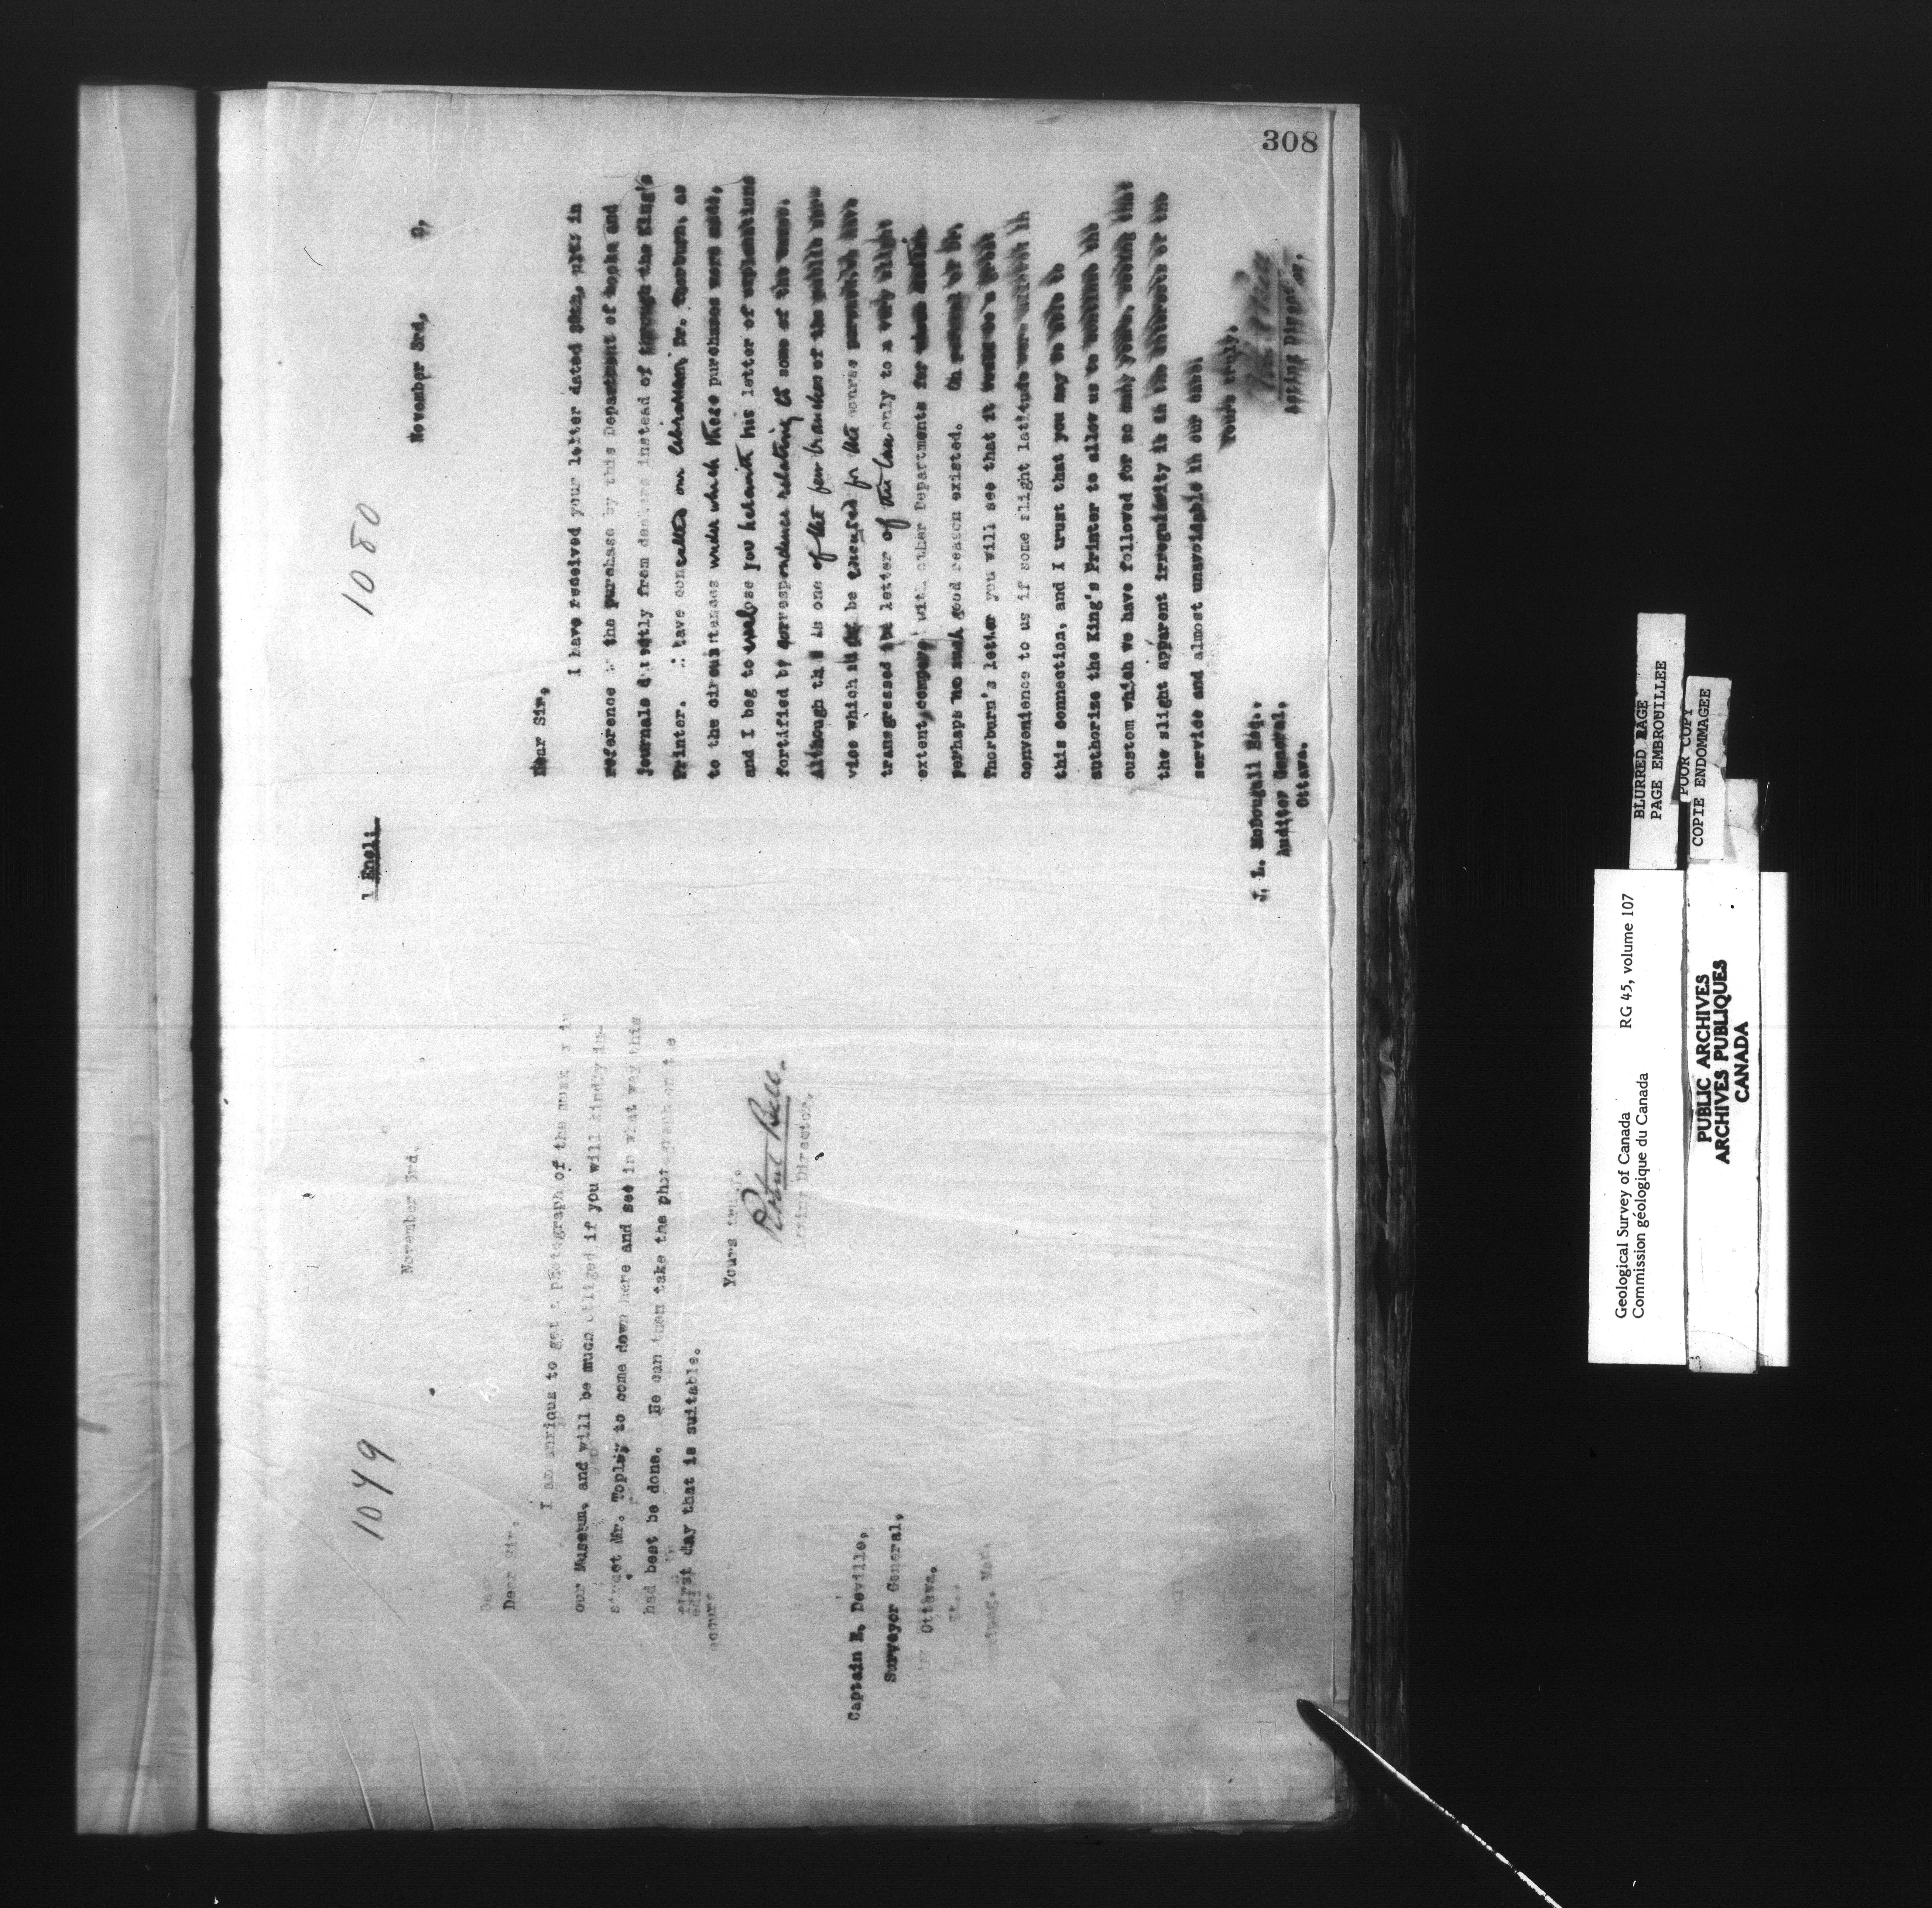 308
1049
November 3rd,
Dear Sir,
I am anxious to get a photograph of the in
our Museum, and will be much obliged if you will kindly in-
struct Mr. Topley to come down here and see in what way this
had best be done. He can then take the photograph on the
first day that is suitable.
Yours truly,
Robert Bell.
Acting Director.
Captain E. Deville,
Surveyor General,
Ottawa.
1 Encl:
1080
November 3rd,
Dear Sir,
I have received your letter dated in
reference to the purchase by this Department of books and
journals directly from dealers instead of through the King's
Printer. I have consulted our Librarian, Dr. Thorburn, as
to the circumstances under which these purchases were made,
and I beg to enclose you herewith his letter of explanations
fortified by correspondence relating to some of the same.
Although this is one of the few branches of the public ser-
vice which may be excused for the course we have
transgressed the letter of the law only to a very slight
extent, compared with other Departments for
perhaps no such good reason existed. On perusal of Dr.
Thorburn's letter you will see that it would be a great
convenience to us if some slight latitude were allowed in
this connection, and I trust that you may be able to
authorize the King's Printer to allow us to continue the
custom which we have followed for so many years, seeing that
the slight apparent irregularity is in the interests of the
service and almost unavoidable in our case.
Yours truly,
Acting Director.
J. L. McDougall Esq.,
Auditor General,
Ottawa.
BLURRED PAGE
PAGE EMBROUILLEE
POOR COPY
COPIE ENDOMMAGEE
Geological Survey of Canada RG 45, volume 107
Commission géologique du Canada
PUBLIC ARCHIVES
ARCHIVES PUBLIQUES
CANADA